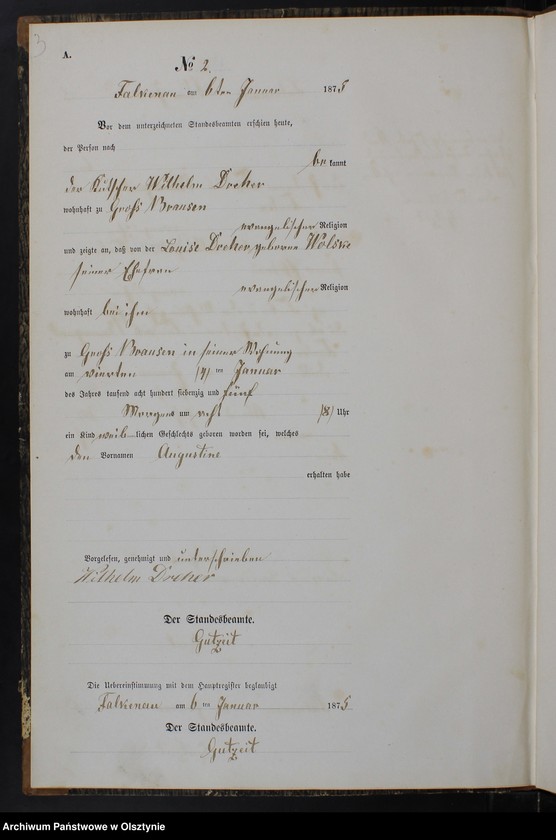 3
A.
No 2.
Falkenau am 6ten Januar 1875
Vor dem unterzeichneten Standesbeamten erschien heute,
der Person nach
be kannt
der Kutscher Wilhelm Dreher
wohnhaft zu Groß Brausen
evangelischer Religion
und zeigte an, daß von der Louise Dreher, geborne Wölske
seiner Ehefrau
evangelischer Religion
wohnhaft bei ihm
zu Groß Brausen in seiner Wohnung
am vierten (4) ten Januar
des Jahres tausend acht hundert siebenzig und fünf
Morgens um acht (8) Uhr
ein Kind weib lichen Geschlechts geboren worden sei, welches
den Vornamen Augustine
erhalten habe
Vorgelesen, genehmigt und unterschrieben
Wilhelm Dreher
Der Standesbeamte.
Gutzeit
Die Uebereinstimmung mit dem Hauptregister beglaubigt
Falkenau am 6 ten Januar 1875
Der Standesbeamte.
Gutzeit
Archiwum Państwowe w Olsztynie